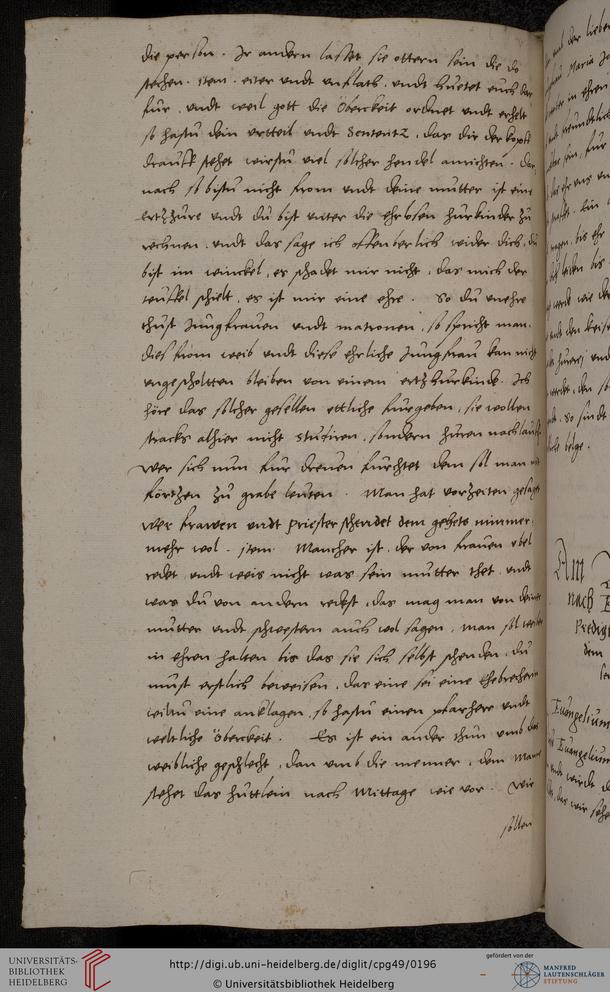 die person. Ir andern lasset sie ottern sein die do
stechen. item. eiter vndt vnflath. vndt huetet euch dar
fur. vndt weil gott die öberckeit ordnet vndt erhelt
so hastu dein vrtteil vndt Sententz, das dir der kopff
drauff stehet wirstu viel solcher hendel anrichten. Dar
nach so bistu nicht from vndt deine mutter ist eine
ertzhure vndt du bist vnter die ehrlosen hurkinder zu
rechnen. vndt das sage ich offenberlich wider dich, du
bist im winckel, es schadet mir nicht, das mich der
teuffel schielt, es ist mir eine ehre. So du vnehre
thust Jungfrauen vndt matronen, so spricht man.
dies from weib vndt diese ehrliche Jungfrau kan nicht
vngescholtten bleiben von einem ertzhurkinde. Ich
höre das solcher gesellen ettliche furgeben, sie wollen
stracks alhier nicht studiren, sondern huren nachlauffen
Wer sich nun fur dreuen furchtet dem sol man mit
förtzen zu grabe leuten. Man hat vorzeiten gesaget
Wer frawen vndt priester schendet dem gehets nimmer
mehr wol. item. Mancher ist, der von frauen vbel
redet vndt weis nicht was sein mutter thet. vndt
was du von andern redest, das mag man von deiner
mutter vndt schwestern auch wol sagen, man sol weiber
in ehren halten bis das sie sich selbst schenden, du
must erstlich beweisen, das eine sei eine Ehebrecherin
wiltu eine anklagen, so hastu einen pfarherr vndt
weltliche öberckeit. Es ist ein ander thun vmb das
weibliche geschlecht, dan vmb die menner, dem Manne
stehet das huttlein nach Mittage wie vor. Wir
sollen
Am
nach
Predigt
dem
Euangelium
Euangelium
UNIVERSITÄTS-
BIBLIOTHEK
HEIDELBERG
http://digi.ub.uni-heidelberg.de/diglit/cpg49/0196
© Universitätsbibliothek Heidelberg
gefördert von der
MANFRED
LAUTENSCHLÄGER
STIFTUNG